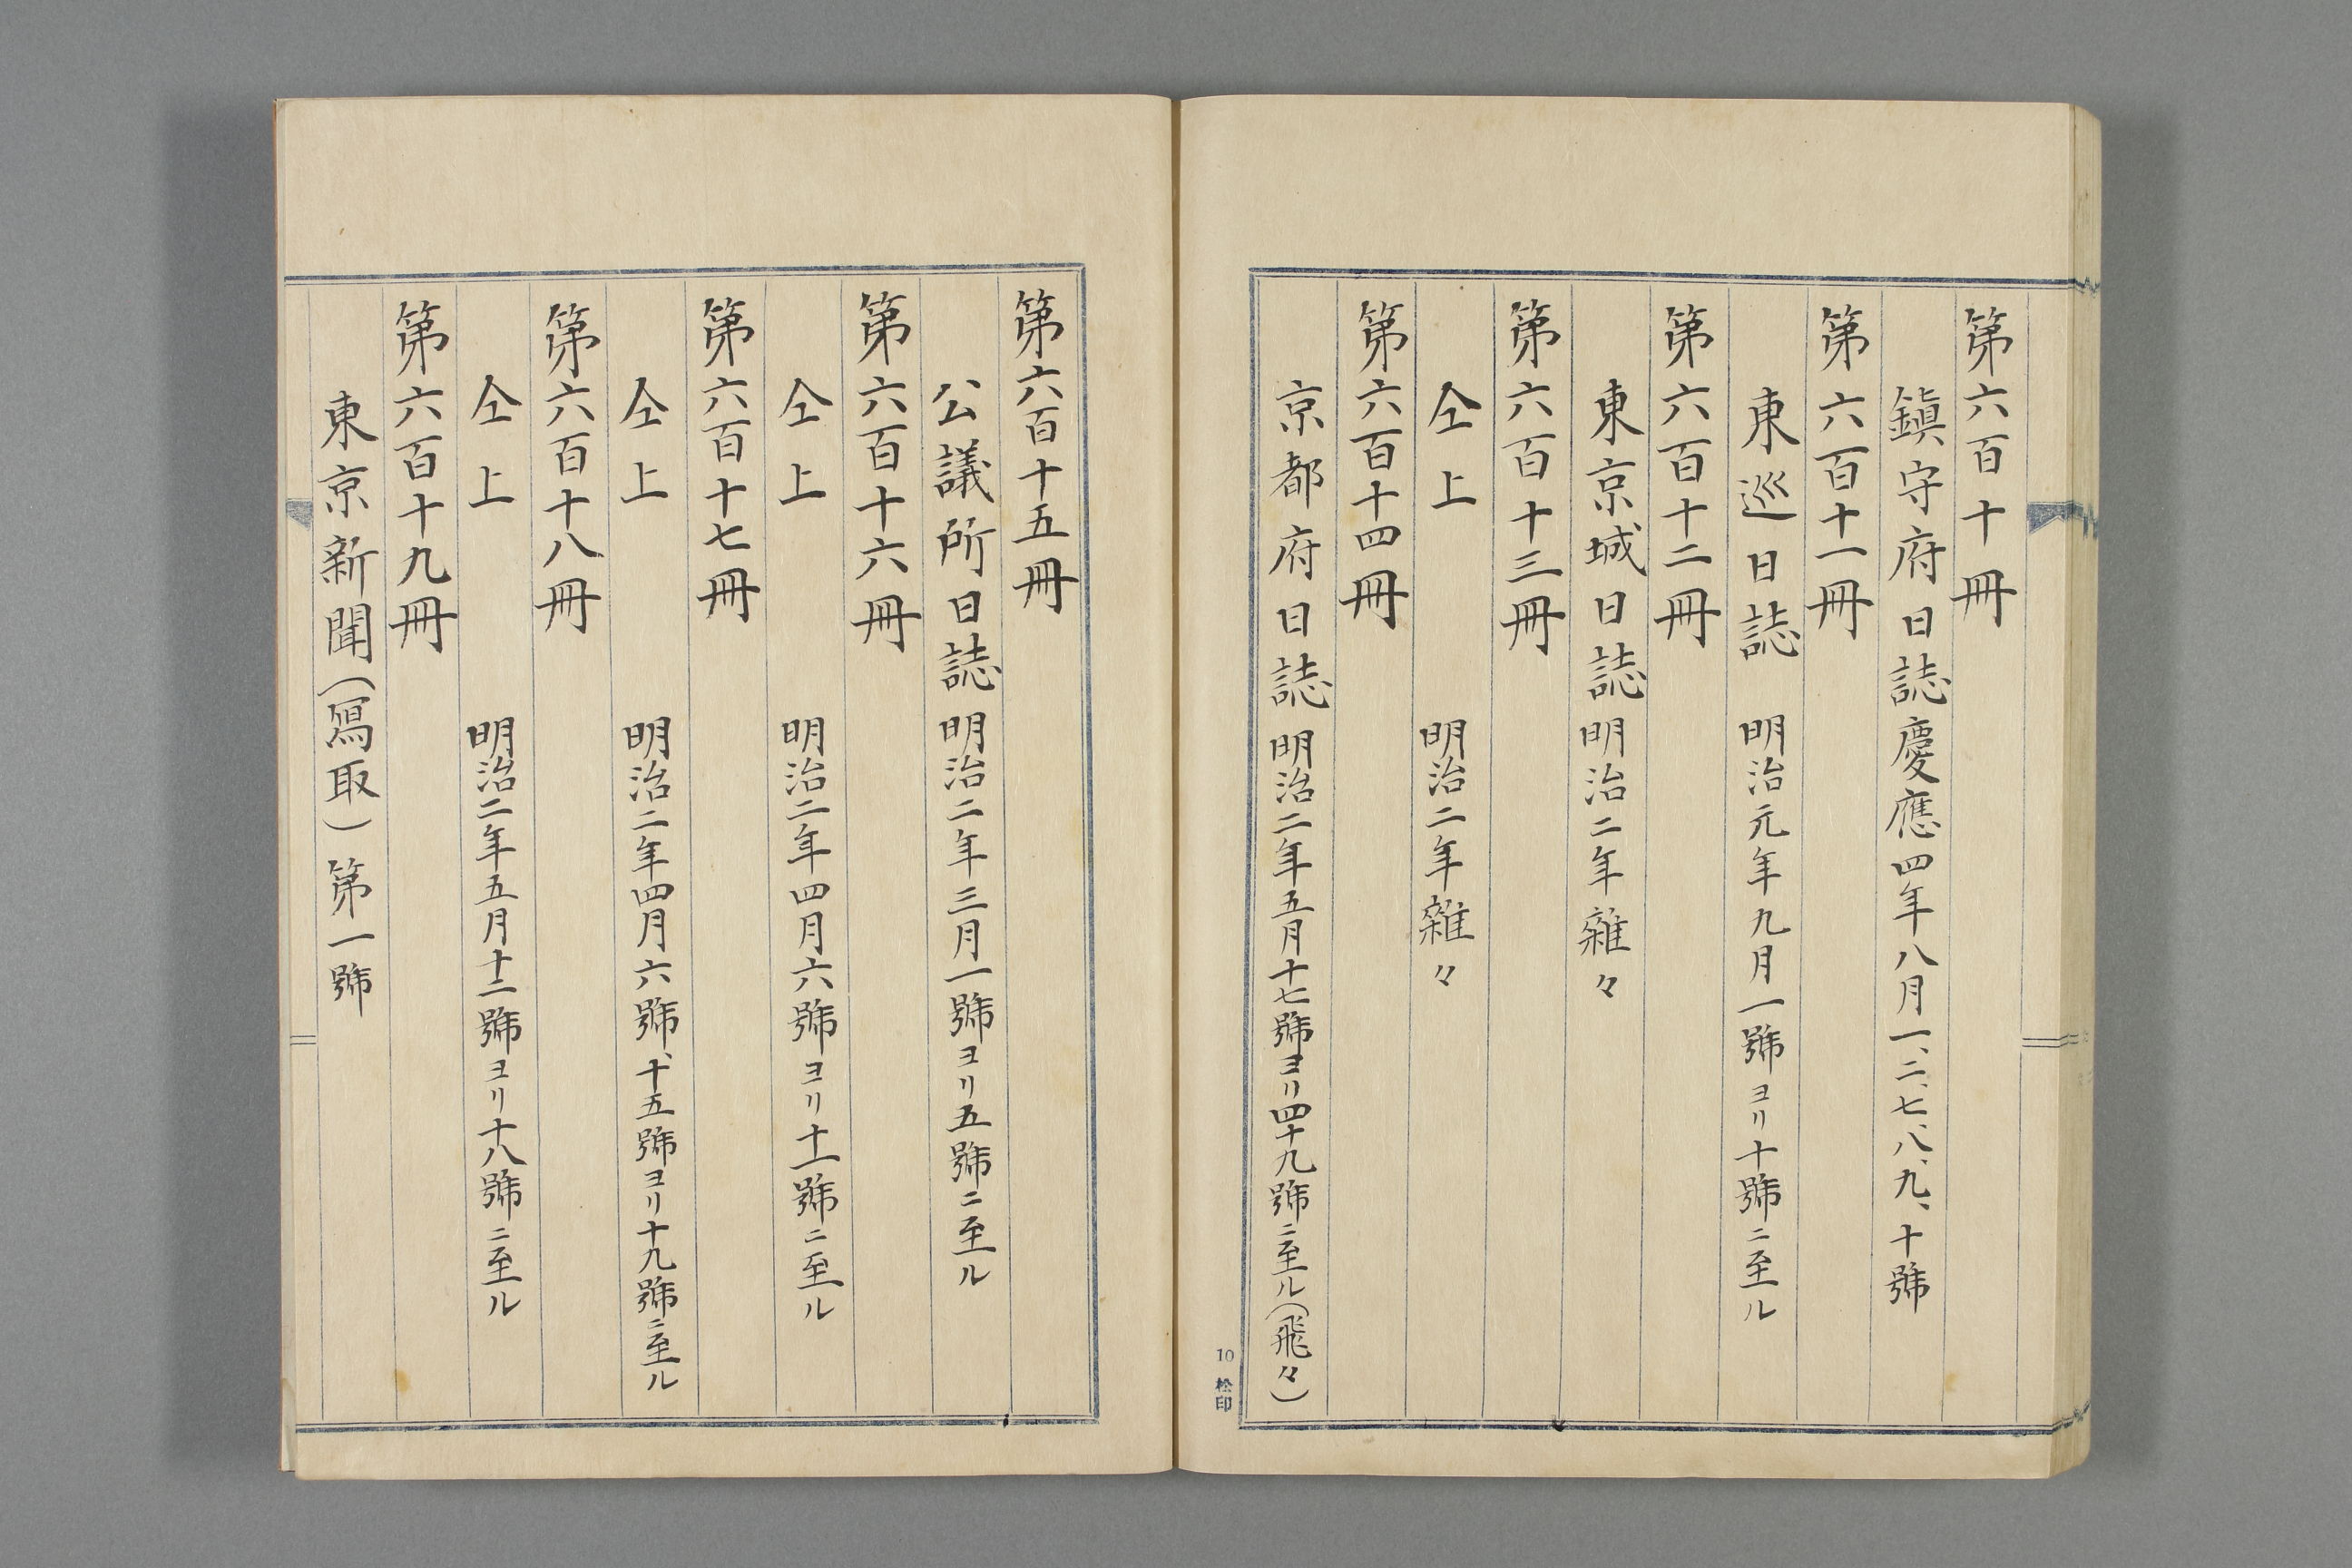 第六百十冊
鎭守府日誌 慶應四年八月一、二、七、八、九、十號
第六百十一冊
東巡日誌 明治元年九月一號ヨリ十號ニ至ル
第六百十二冊
東京城日誌 明治二年雜々
第六百十三冊
仝上 明治二年雜々
第六百十四冊
京都府日誌 明治二年五月十七號ヨリ四十九號ニ至ル(飛々)
10 松印
第六百十五冊
公議所日誌 明治二年三月一號ヨリ五號ニ至ル
第六百十六冊
仝上 明治二年四月六號ヨリ十一號ニ至ル
第六百十七冊
仝上 明治二年四月六號、十五號ヨリ十九號ニ至ル
第六百十八冊
仝上 明治二年五月十二號ヨリ十八號ニ至ル
第六百十九冊
東京新聞(寫取)第一號